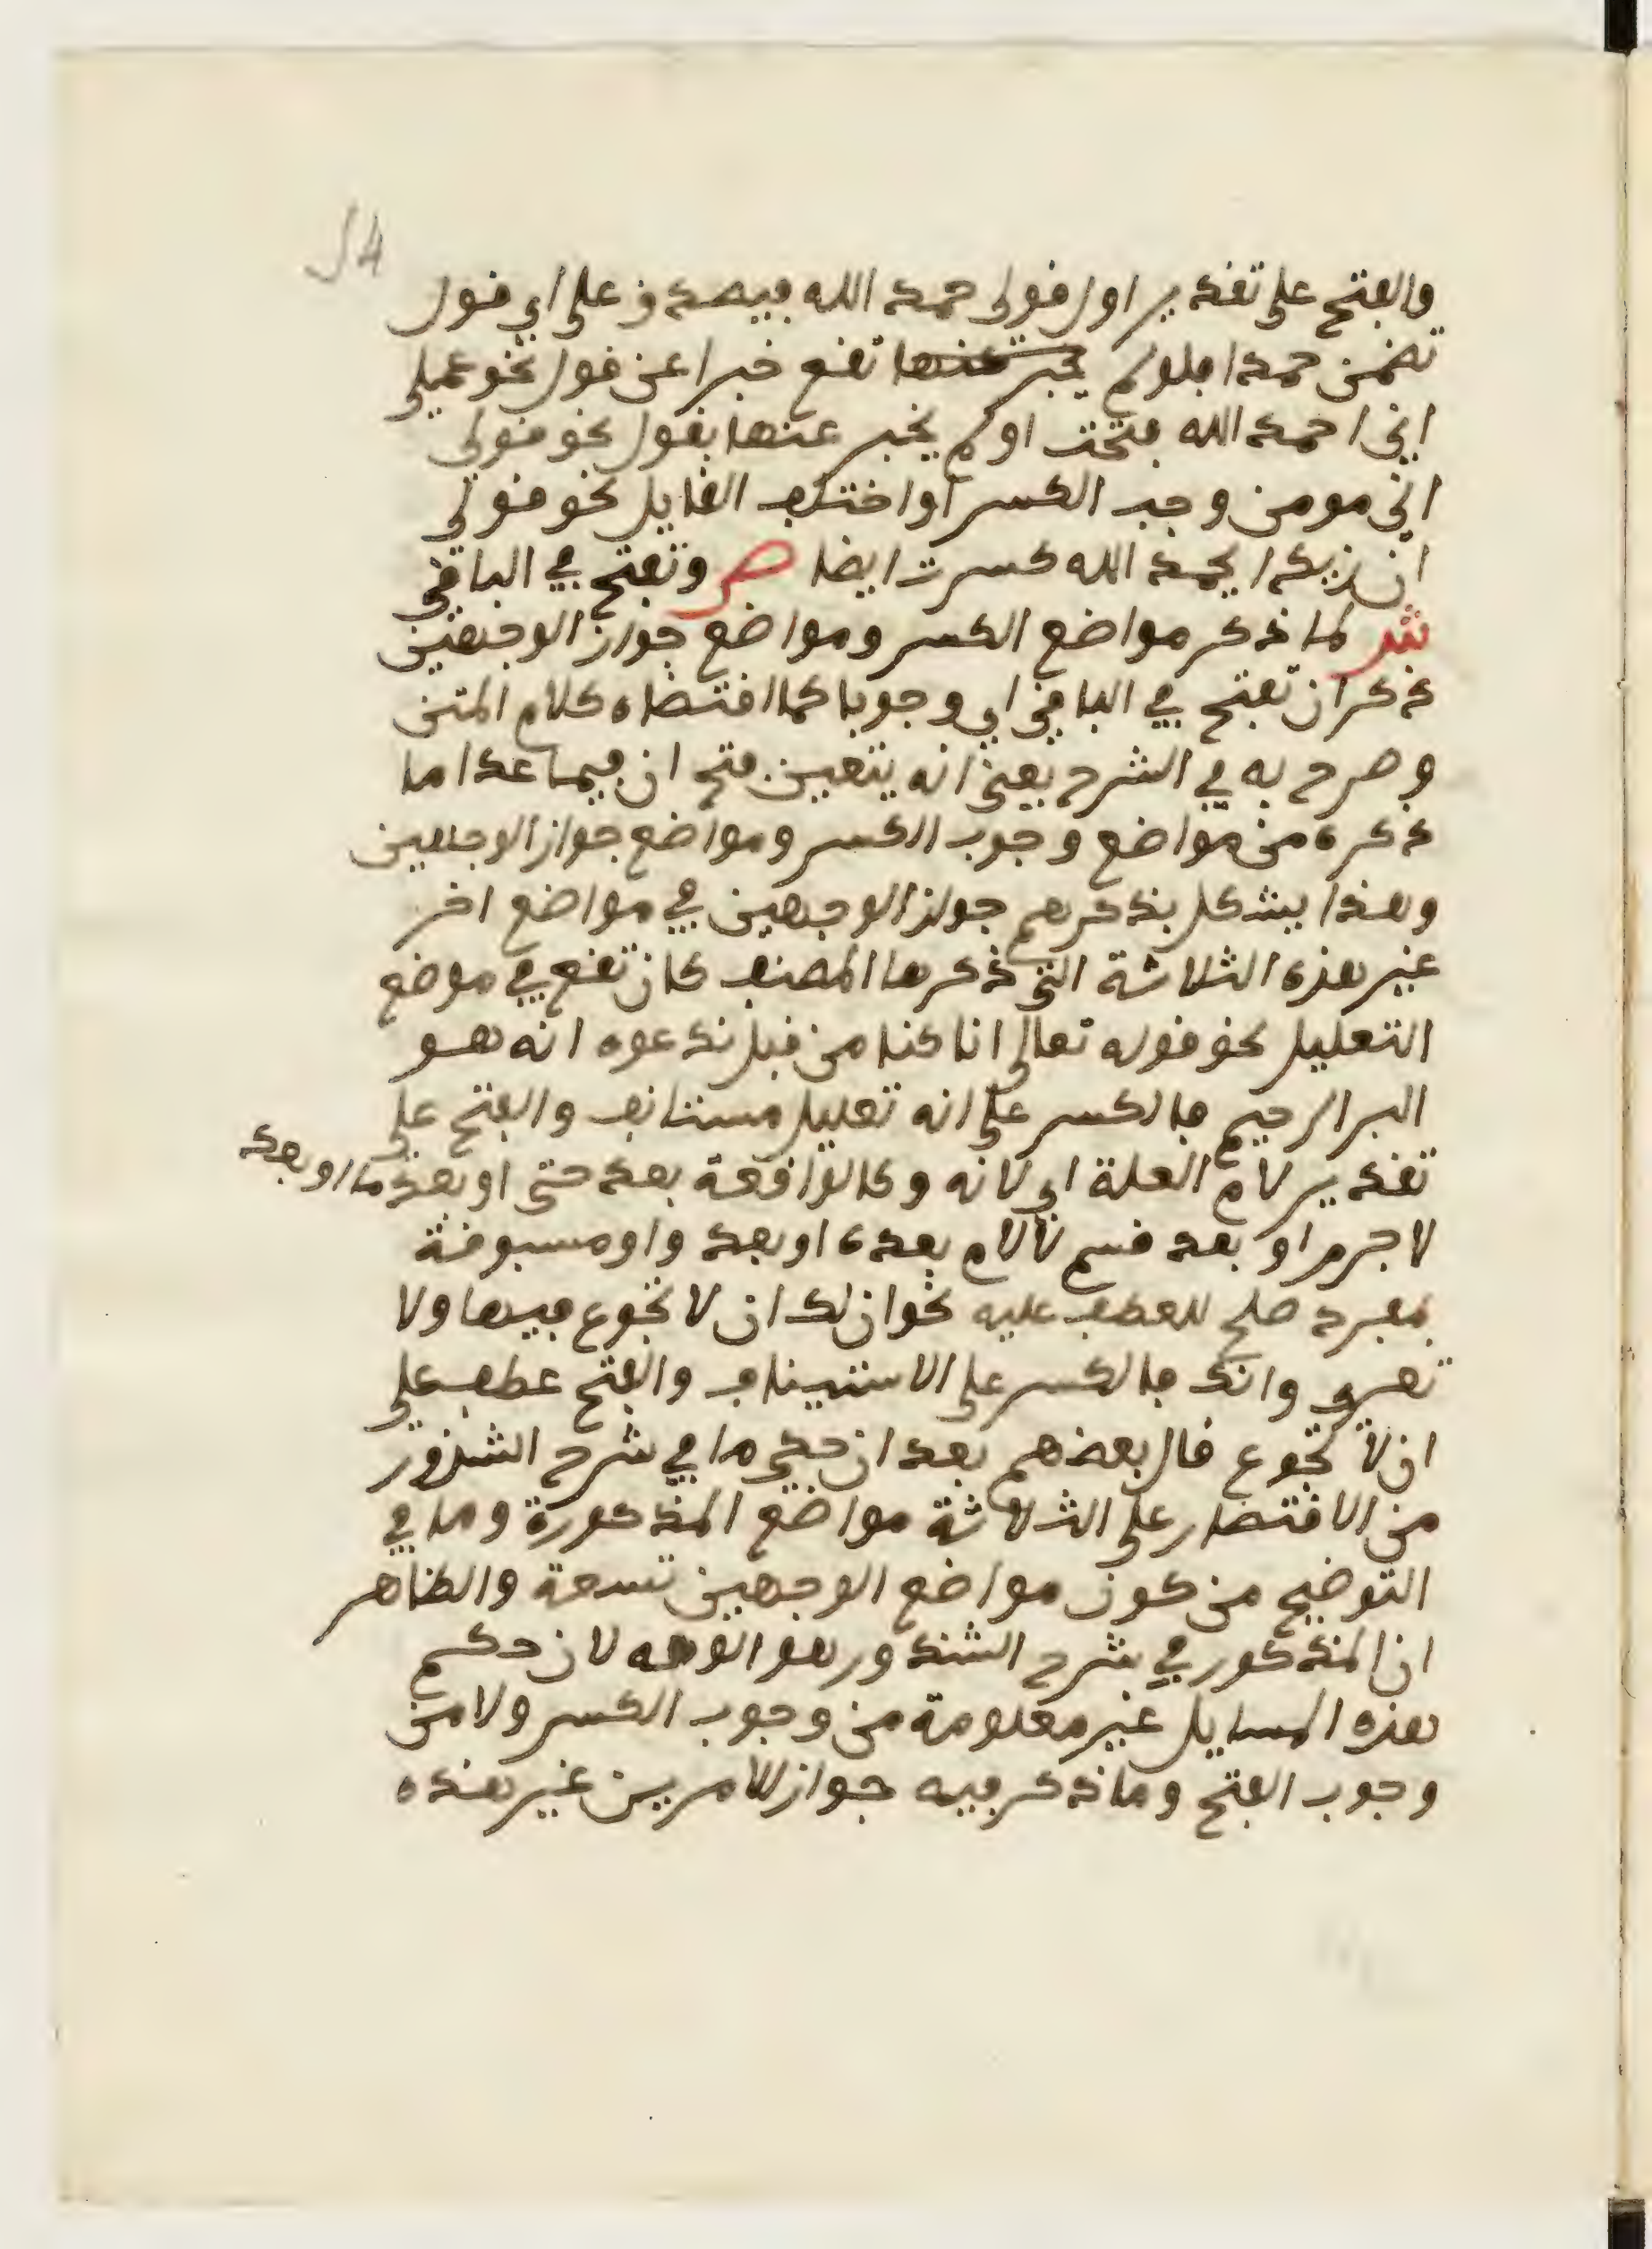 54
والفتح على تقدير اول قولي حمد الله فيصدق على اي قول
تضمن حمدا فلو لم يخبر عنها تقع خبرا عن قول نحو عملي
اني احمد الله فتحت او لم يخبر عنها بقول نحو قولي
اني مومن وجب الكسر او اختلف القايل نحو قولي
ان زيدا يحمد الله كسرت ايضا ص وتفتح في الباقي
ش لما ذكر مواضع الكسر ومواضع جواز الوجهين
ذكر ان تفتح في الباقي اي وجوبا كما اقتضاه كلام المتن
وصرح به في الشرح يعني انه يتعين فتح ان فيما عدا ما
ذكره من مواضع وجوب الكسر ومواضع جواز الوجهين
وهذا يشكل بذكرهم جواز الوجهين في مواضع اخر
غير هذه الثلاثة التي ذكرها المصنف كان تقع في موضع
التعليل نحو قوله تعالى انا كنا من قبل ندعوه انه هو
البر الرحيم فالكسر على انه تعليل مستانف والفتح على
تقدير لام العلة اي لانه وكالواقعة بعد حتى او بعد ما او بعد
لا جرم او بعد قسم لا لام بعده او بعد واو مسبوقة
بمفرد صلح للعطف عليه نحو ان لك ان لا تجوع فيها ولا
تعرى وانك فالكسر على الاستيناف والفتح عطف على
ان لا تجوع قال بعضهم بعد ان حكى ما في شرح الشذور
من الاقتصار على الثلاثة مواضع المذكورة وما في
التوضيح من كون مواضع الوجهين تسعة والظاهر
ان المذكور في شرح الشذور هو الوجه لان حكم
هذه المسايل غير معلومة من وجوب الكسر ولا من
وجوب الفتح وما ذكر فيه جواز الامرين غير هذه